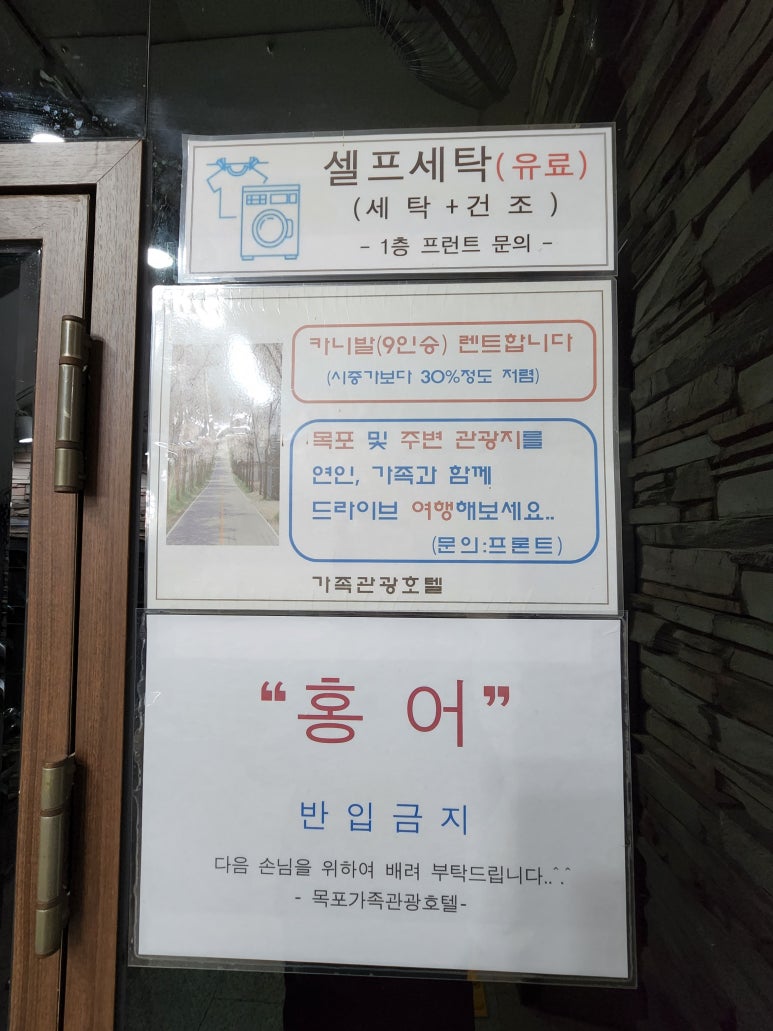 셀프세탁(유료)
(세 탁 + 건 조 )
- 1층 프런트 문의 -
카니발(9인승) 렌트합니다
(시중가보다 30%정도 저렴)
목포 및 주변 관광지를
연인, 가족과 함께
드라이브 여행해보세요..
(문의:프론트)
가족관광호텔
“홍 어”
반 입 금 지
다음 손님을 위하여 배려 부탁드립니다..^.^
- 목포가족관광호텔-